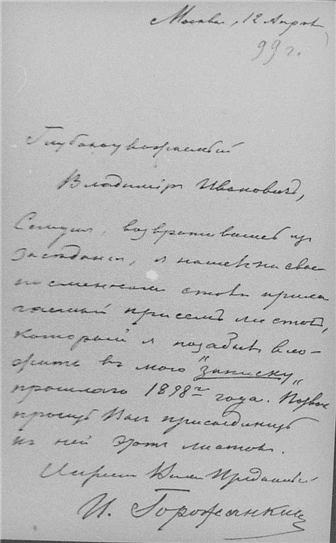 Москва, 12 Апрѣля
99 г.
Глубокоуважаемый
Владимiръ Ивановичъ,
Сегодня, возвратившись изъ
засѣданiя, я нашелъ на своемъ
письменномъ столѣ прила-
гаемый при семъ листокъ,
который я позабылъ вло-
жить въ мою "записку"
прошлаго 1898 года. Покор
прошу Васъ присоединить
къ ней этотъ листокъ.
Искренно Вамъ Преданный
И. Горожанкинъ